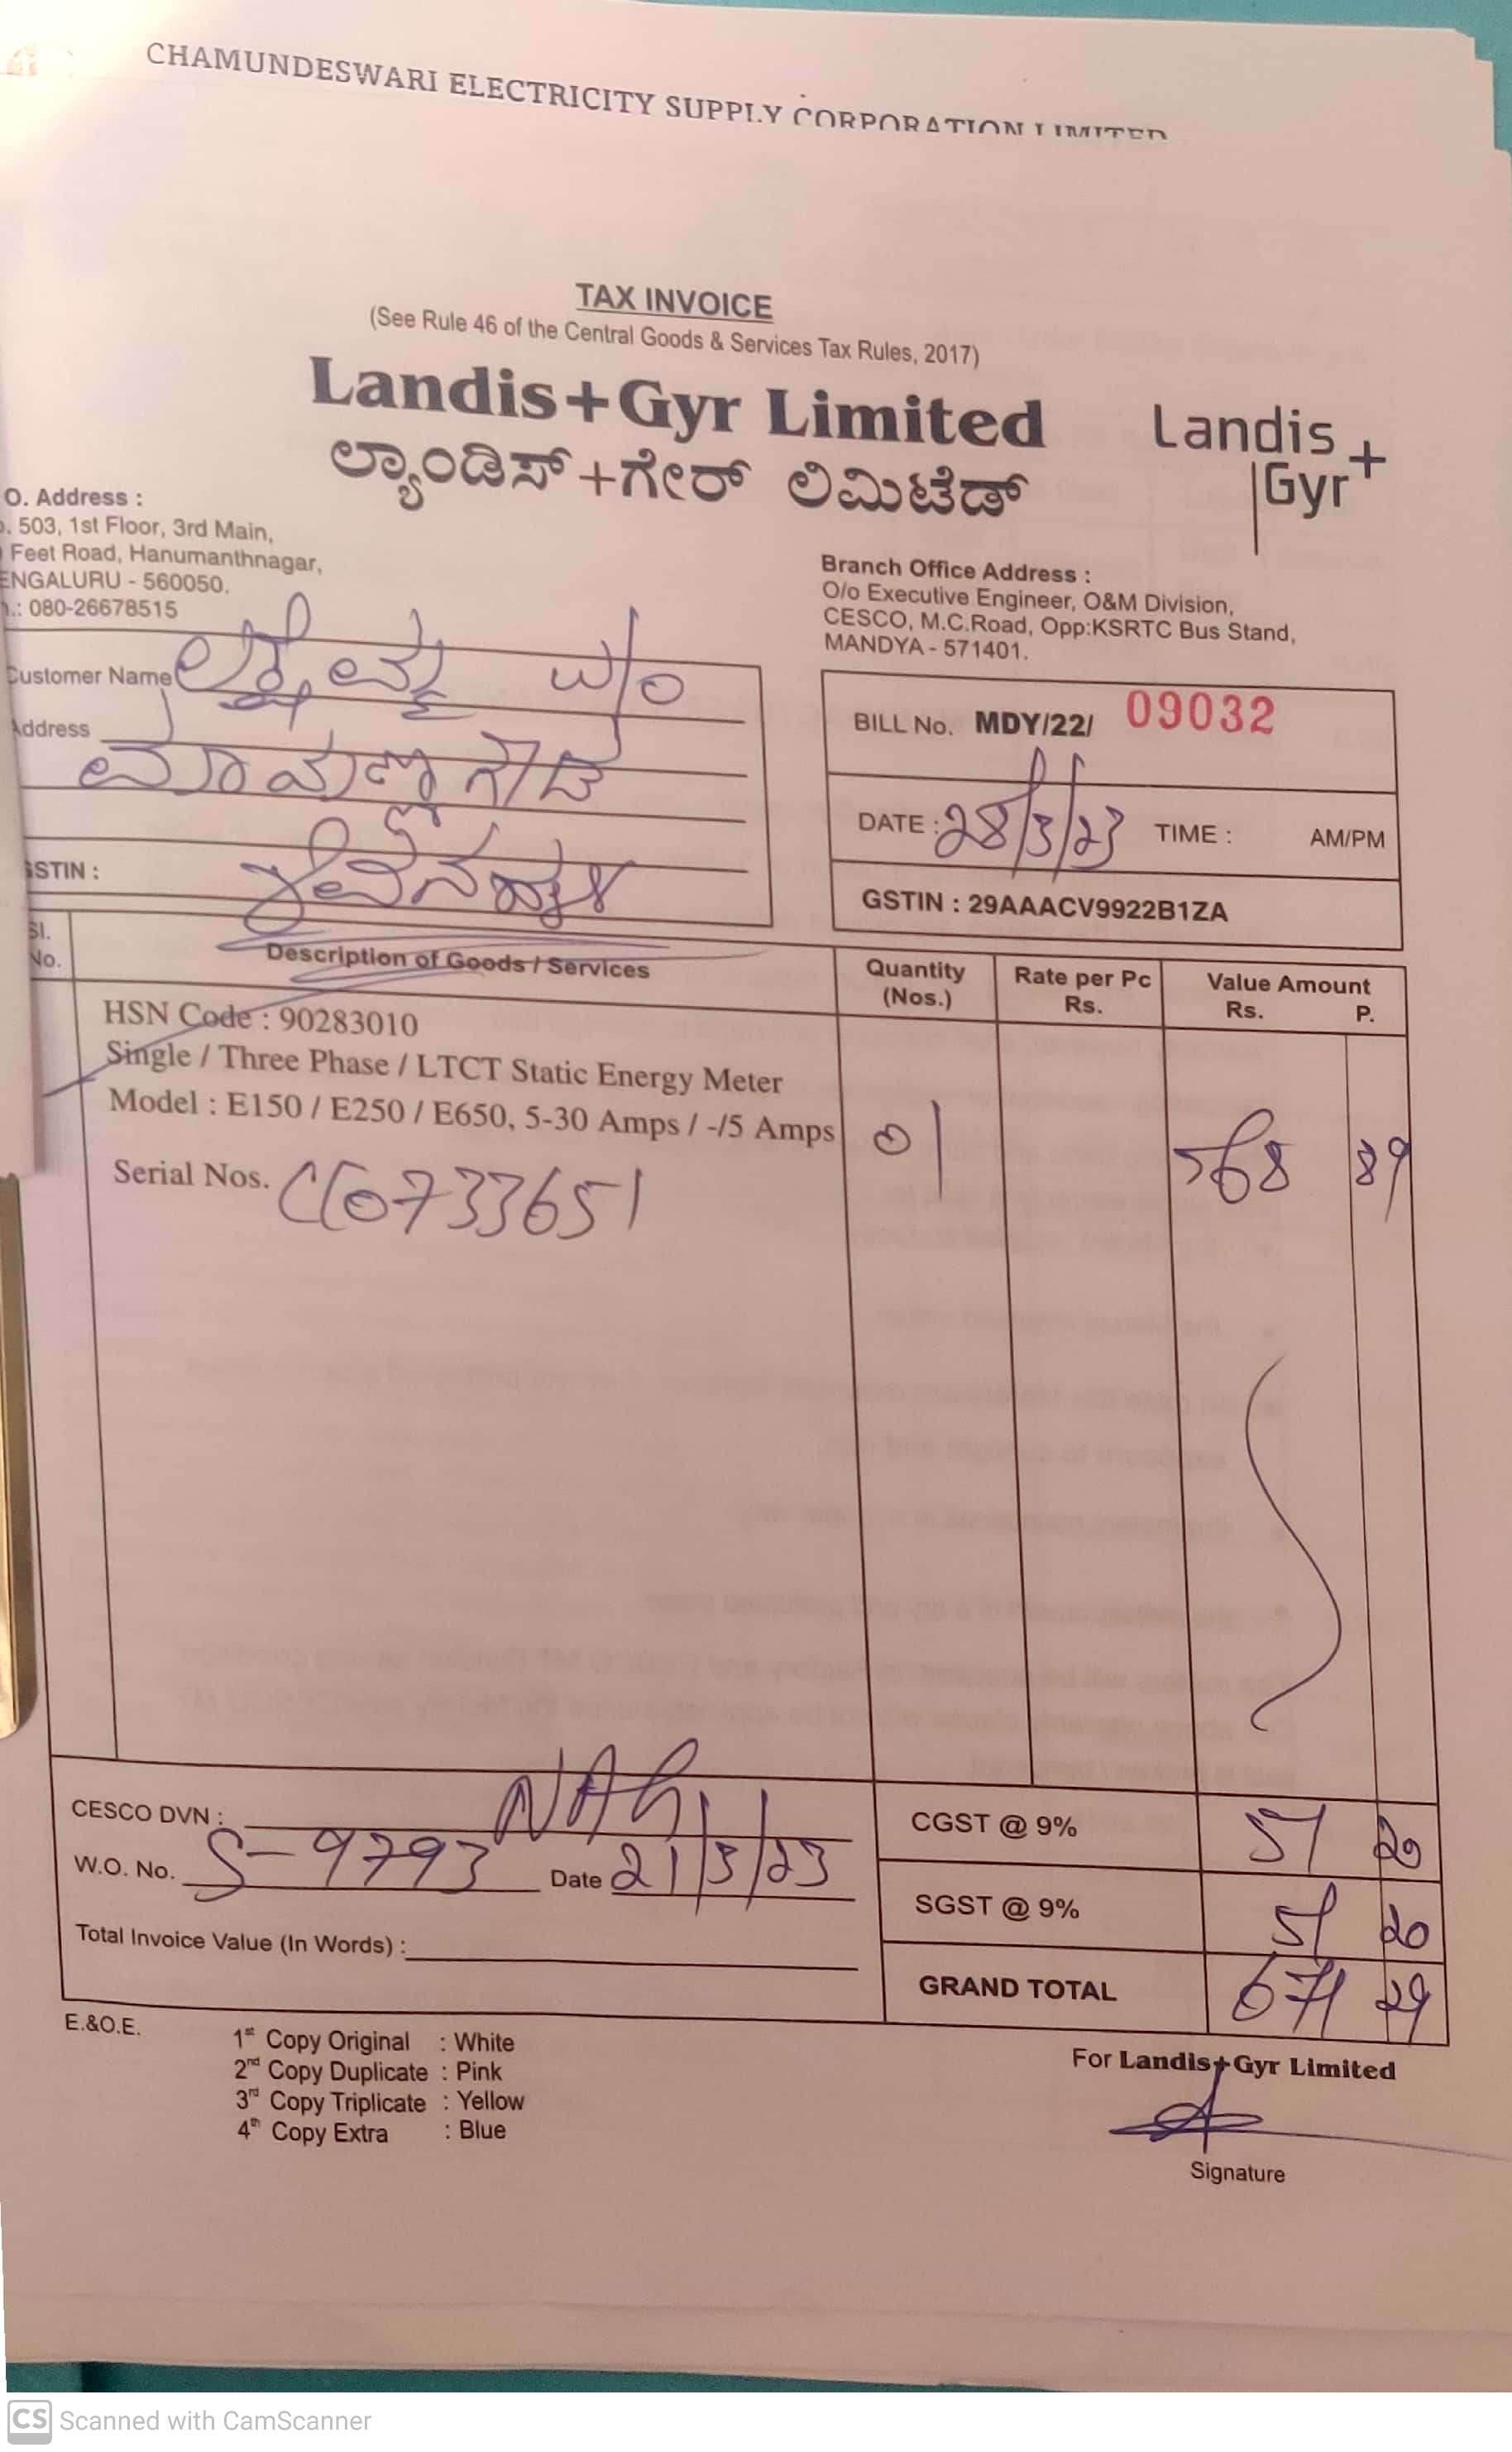 CHAMUNDESWARI ELECTRICITY SUPPLY CORPORATION LIMITED
TAX INVOICE
(See Rule 46 of the Central Goods & Services Tax Rules, 2017)
Landis+Gyr Limited
ಲ್ಯಾಂಡಿಸ್+ಗೇರ್ ಲಿಮಿಟೆಡ್
Landis
Gyr+
O. Address :
. 503, 1st Floor, 3rd Main,
Feet Road, Hanumanthnagar,
ENGALURU - 560050.
.: 080-26678515
Branch Office Address :
O/o Executive Engineer, O&M Division,
CESCO, M.C.Road, Opp:KSRTC Bus Stand,
MANDYA - 571401.
Customer Name W/o
Address
GSTIN :
BILL No. MDY/22/ 09032
DATE : 28/3/23 TIME : AM/PM
GSTIN : 29AAACV9922B1ZA
Sl. No. Description of Goods / Services Quantity (Nos.) Rate per Pc Rs. Value Amount Rs. P.
HSN Code : 90283010
Single / Three Phase / LTCT Static Energy Meter
Model : E150 / E250 / E650, 5-30 Amps / -/5 Amps 01 568 89
Serial Nos. CC0733651
CESCO DVN :
W.O. No. S-9793 Date 21/3/23
Total Invoice Value (In Words) :
CGST @ 9% 51 20
SGST @ 9% 51 20
GRAND TOTAL 671 29
E.&O.E.
1st Copy Original : White
2nd Copy Duplicate : Pink
3rd Copy Triplicate : Yellow
4th Copy Extra : Blue
For Landis+Gyr Limited
Signature
CS Scanned with CamScanner